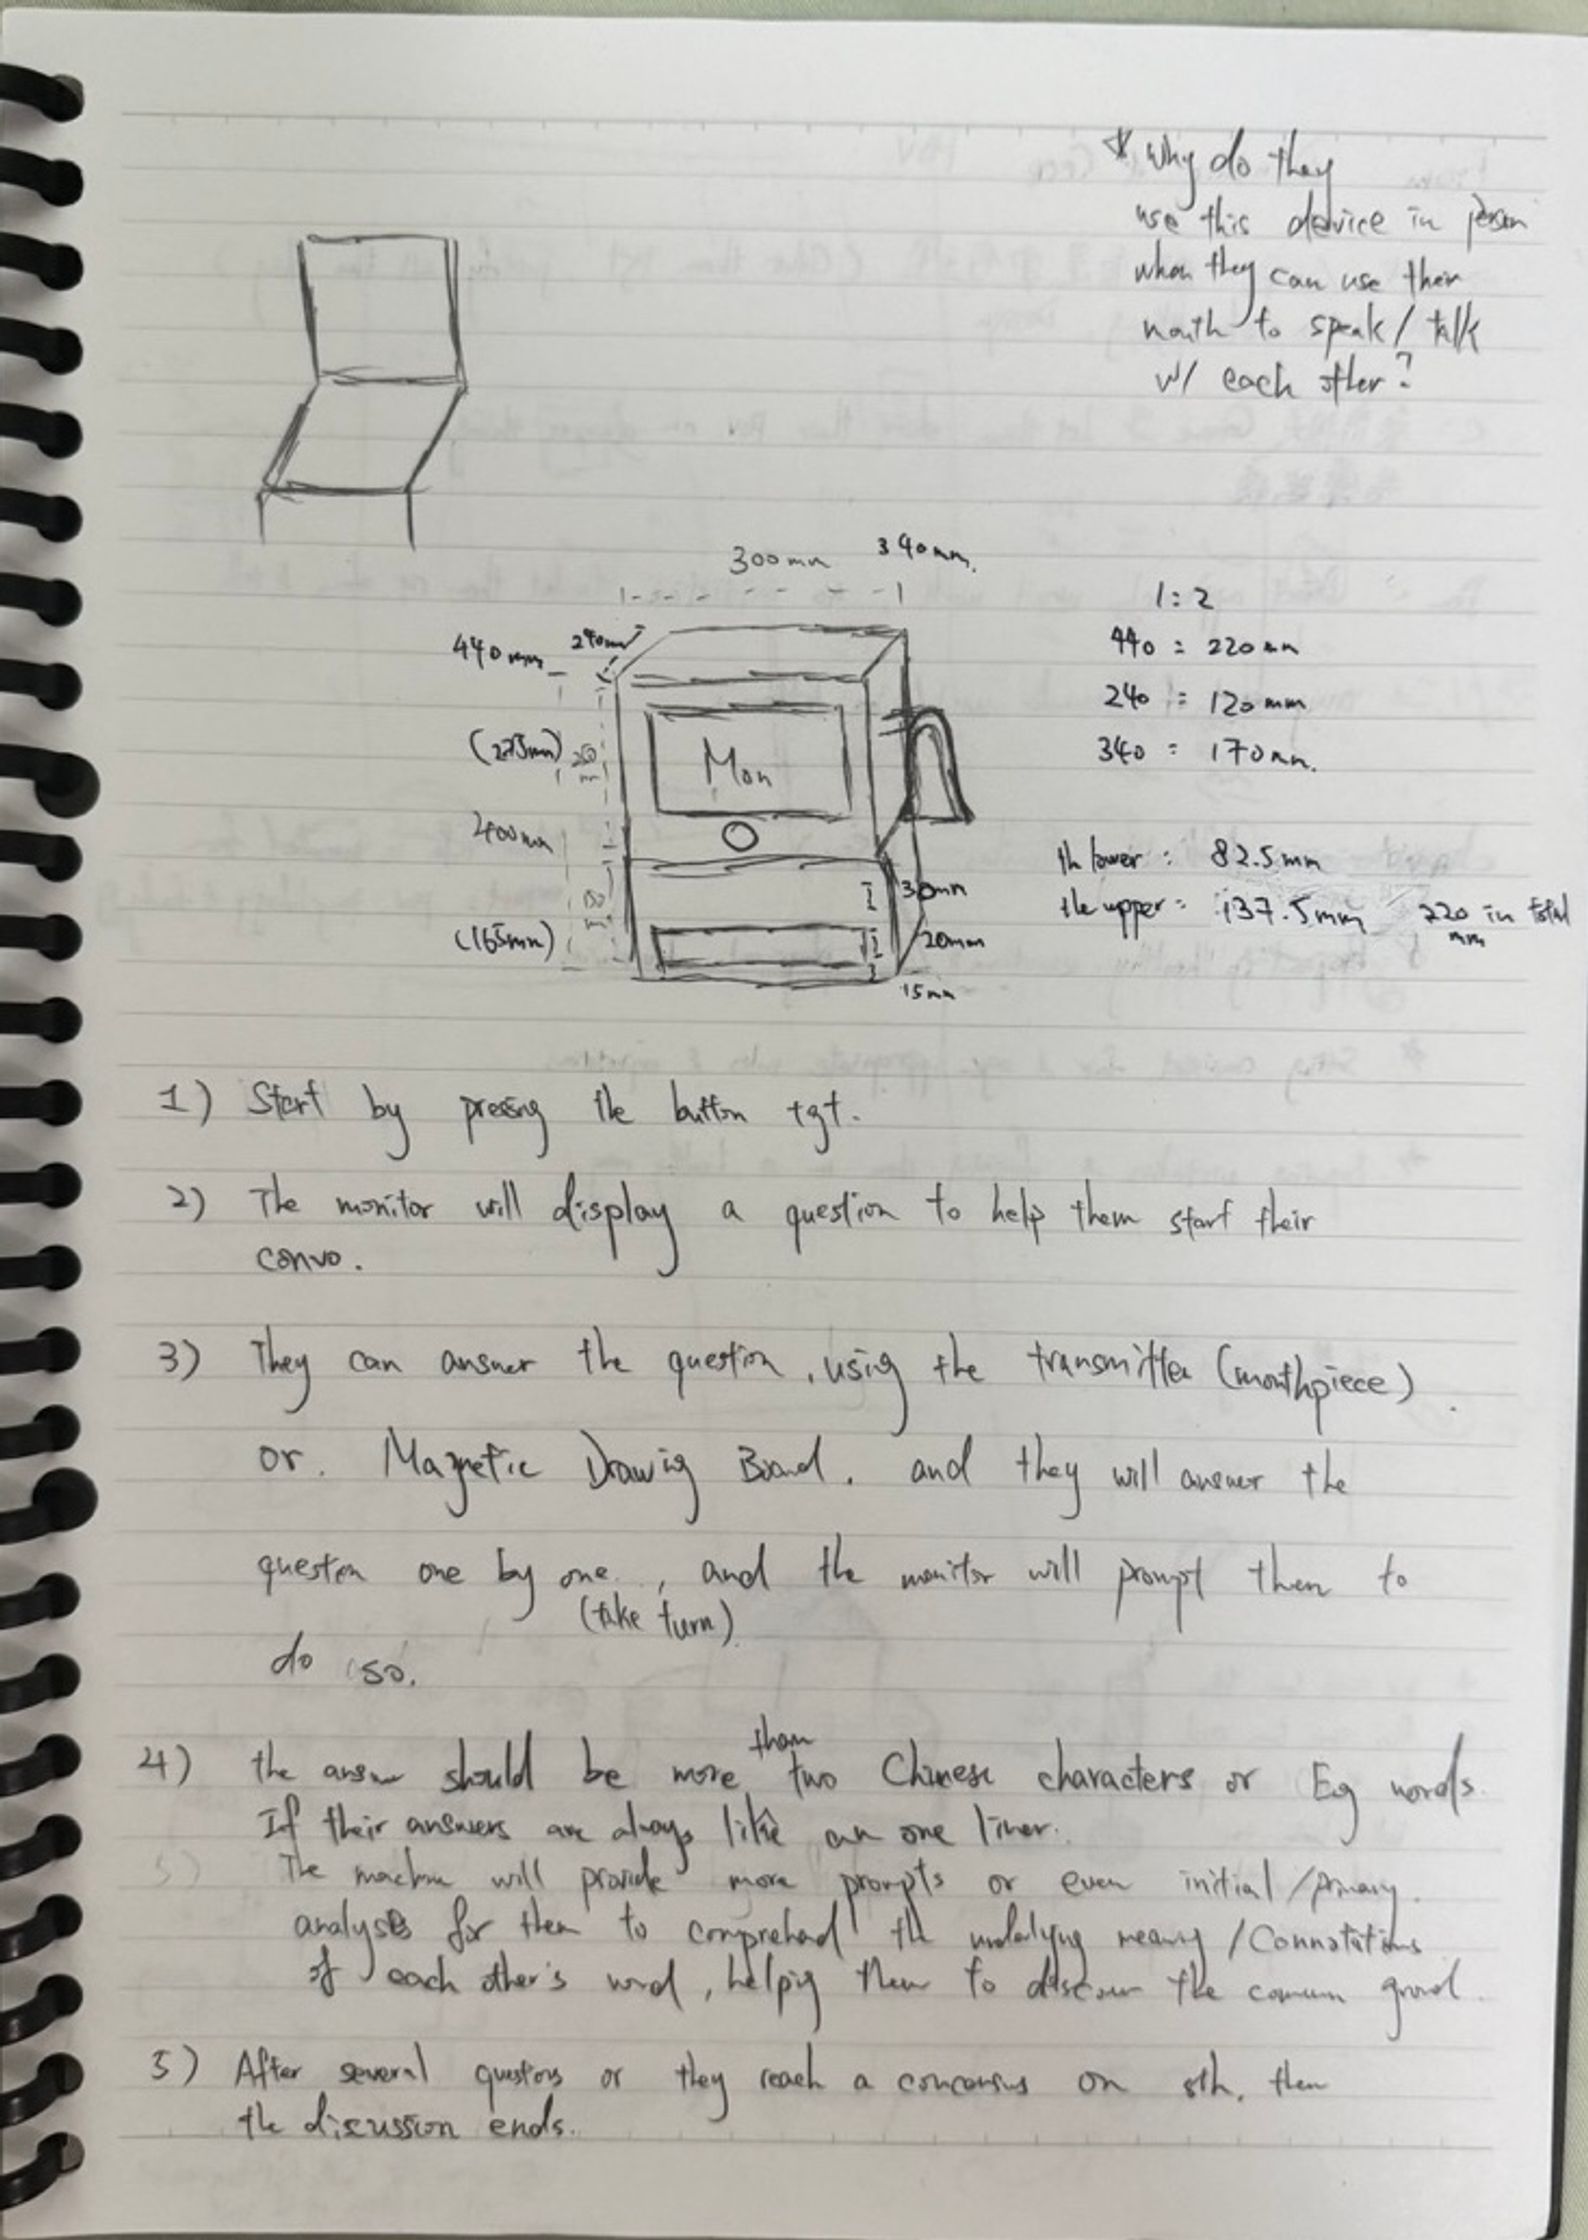 * Why do they
use this device in person
when they can use their
mouth to speak / talk
w/ each other?
300mm 340mm.
440mm 240mm
(275mm) 250mm
Mon
400mm
150mm
(165mm)
30mm
20mm
15mm
1:2
440 = 220mm
240 = 120mm
340 = 170mm.
th lower : 82.5mm
the upper = 137.5mm 220 in total
mm
1) Start by pressing the button tgt.
2) The monitor will display a question to help them start their
convo.
3) They can answer the question, using the transmitter (mouthpiece)
or. Magnetic Drawing Board. and they will answer the
question one by one., and the monitor will prompt them to
(take turn)
do so.
4) the answer should be more than two Chinese characters or Eg words.
If their answers are always like an one liner.
5) The machine will provide more prompts or even initial / primary.
analysis for them to comprehend the underlying meaning / Connotations
of each other's word, helping them to discover the common ground.
5) After several questions or they reach a concensus on sth, then
the discussion ends.